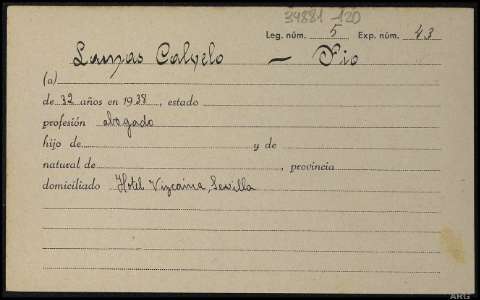 34881-120
Leg. núm. 5 Exp. núm. 43
Lanzas Calvelo — Pio
(a)
de 32 años en 1938, estado
profesión abogado
hijo de y de
natural de , provincia
domiciliado Hotel Vizcaina, Sevilla
ARG